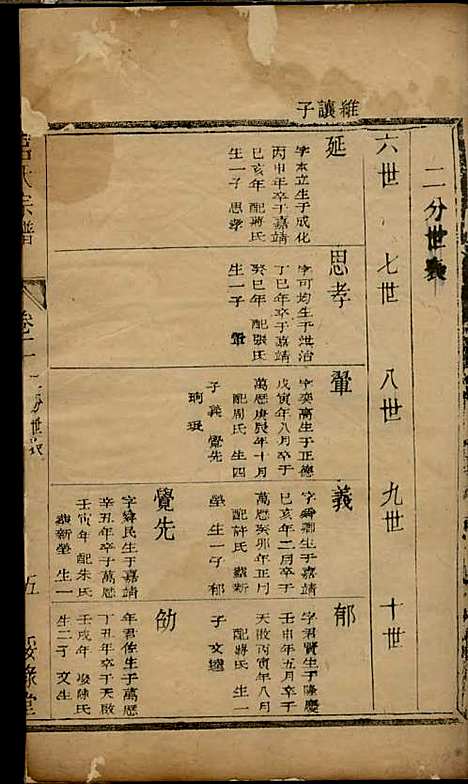 二分世表
六世
七世
八世
九世
十世
維讓子
延
字本立生于成化
丙申年卒于嘉靖
己亥年 配蔣氏
生一子 思孝
思孝
字可均生于
丁巳年卒于嘉靖
癸巳年 配張氏
生一子 鞏
鞏
字奕高生于正德
戊寅年八月卒于
萬歷庚辰年十月
配周氏 生四
子 義 覺先
義
生于嘉靖
己亥年二月卒于
萬歷癸卯年正月
配許氏
生一子 郁
覺先
字舜民生于嘉靖
辛丑年卒于萬歷
壬寅年 配朱氏
生一
郁
字君賢生于隆慶
壬申年五月卒于
天啟丙寅年八月
配蔣氏 生一
子 文
劬
年君佐生于萬歷
丁丑年卒于天啟
壬戌年 陳氏
生二子 文生
氏宗譜
卷二
二分世表
五